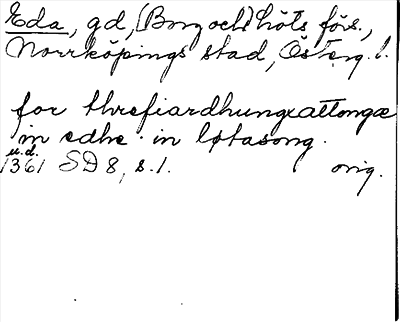 Eda, gd, (Borg och) Löts förs.,
Norrköpings stad, Österg. l.
for threfiardhungxattongæ
in edhe · in løtasong.
u.d.
1361 SD 8, s. 1. orig.